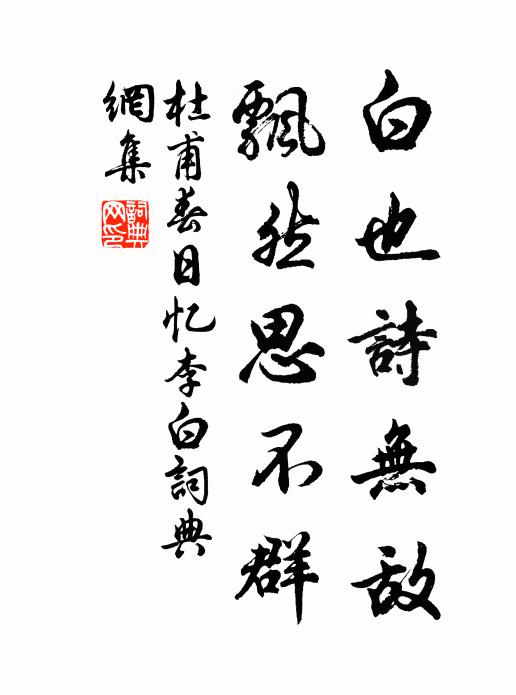 白也詩無敌
飄然思不群
杜甫春日忆李白詞典
網集
詞典網印